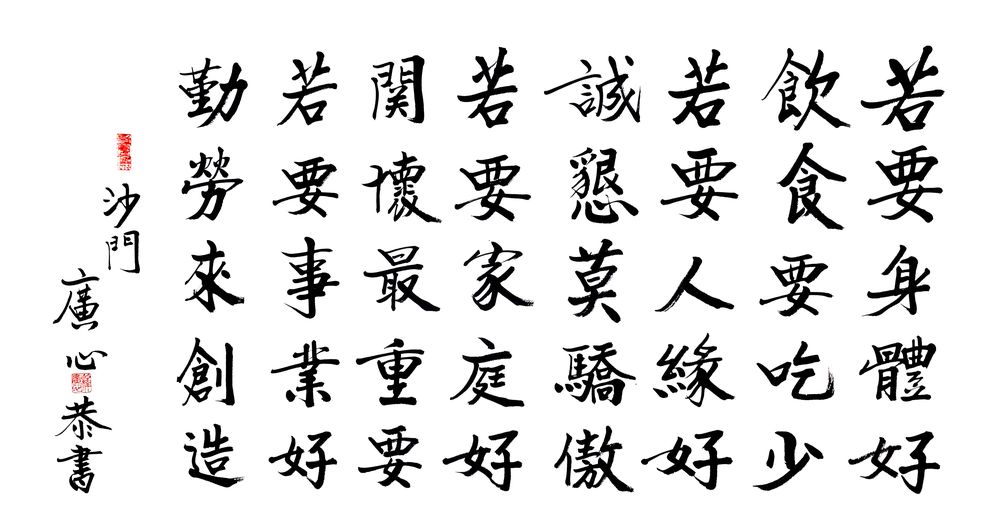 若要身體好
飲食要吃少
若要人緣好
誠懇莫驕傲
若要家庭好
関懷最重要
若要事業好
勤勞來創造
沙門
廣心恭書